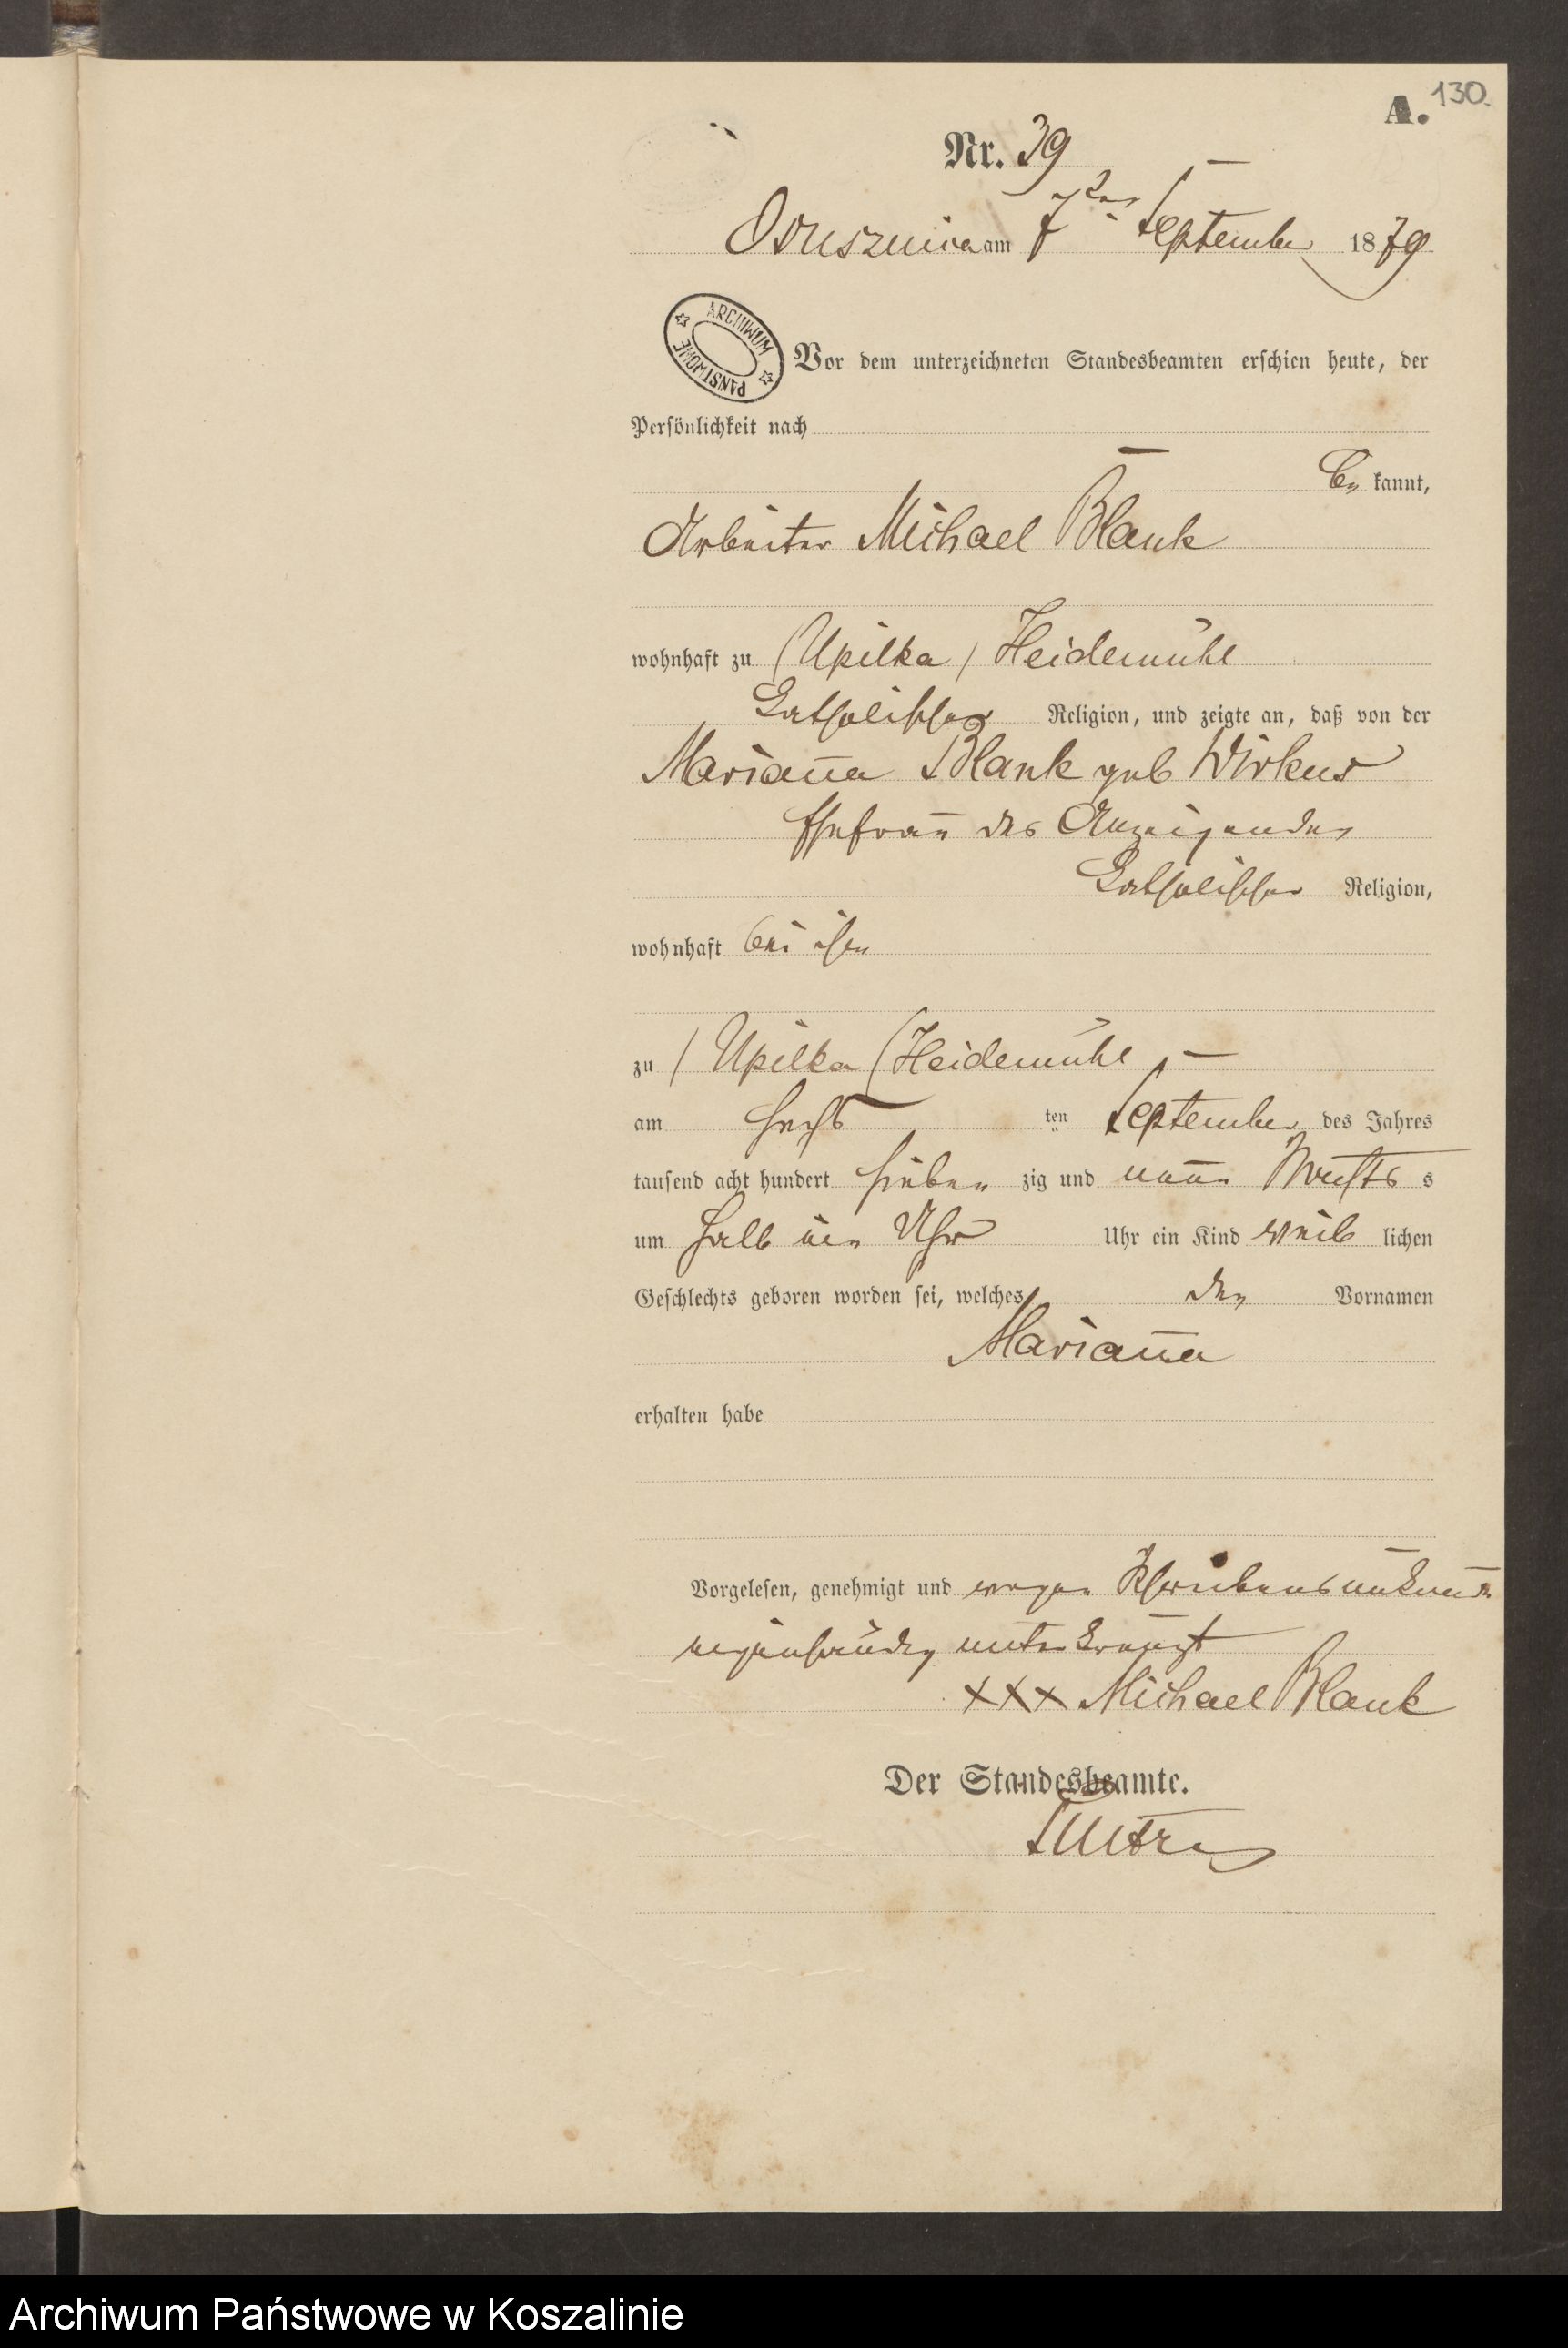 A. 130.
Nr. 39
Ossusznica am 7ten September 1879
ARCHIWUM PAŃSTWOWE
Vor dem unterzeichneten Standesbeamten erschien heute, der
Persönlichkeit nach
be kannt,
Arbeiter Michael Blank
wohnhaft zu (Upilka) Heidemühl
katholischer Religion, und zeigte an, daß von der
Marianna Blank geb Wirkus
Ehefrau des Anzeigenden
katholischer Religion,
wohnhaft bei ihm
zu (Upilka( Heidemühl
am sechs ten September des Jahres
tausend acht hundert sieben zig und neun Nachts s
um halb Uhr Uhr ein Kind weib lichen
Geschlechts geboren worden sei, welches den Vornamen
Marianna
erhalten habe
Vorgelesen, genehmigt und wegen Schreibensunkunde
unterkreuzt
XXX Michael Blank
Der Standesbeamte.
Archiwum Państwowe w Koszalinie